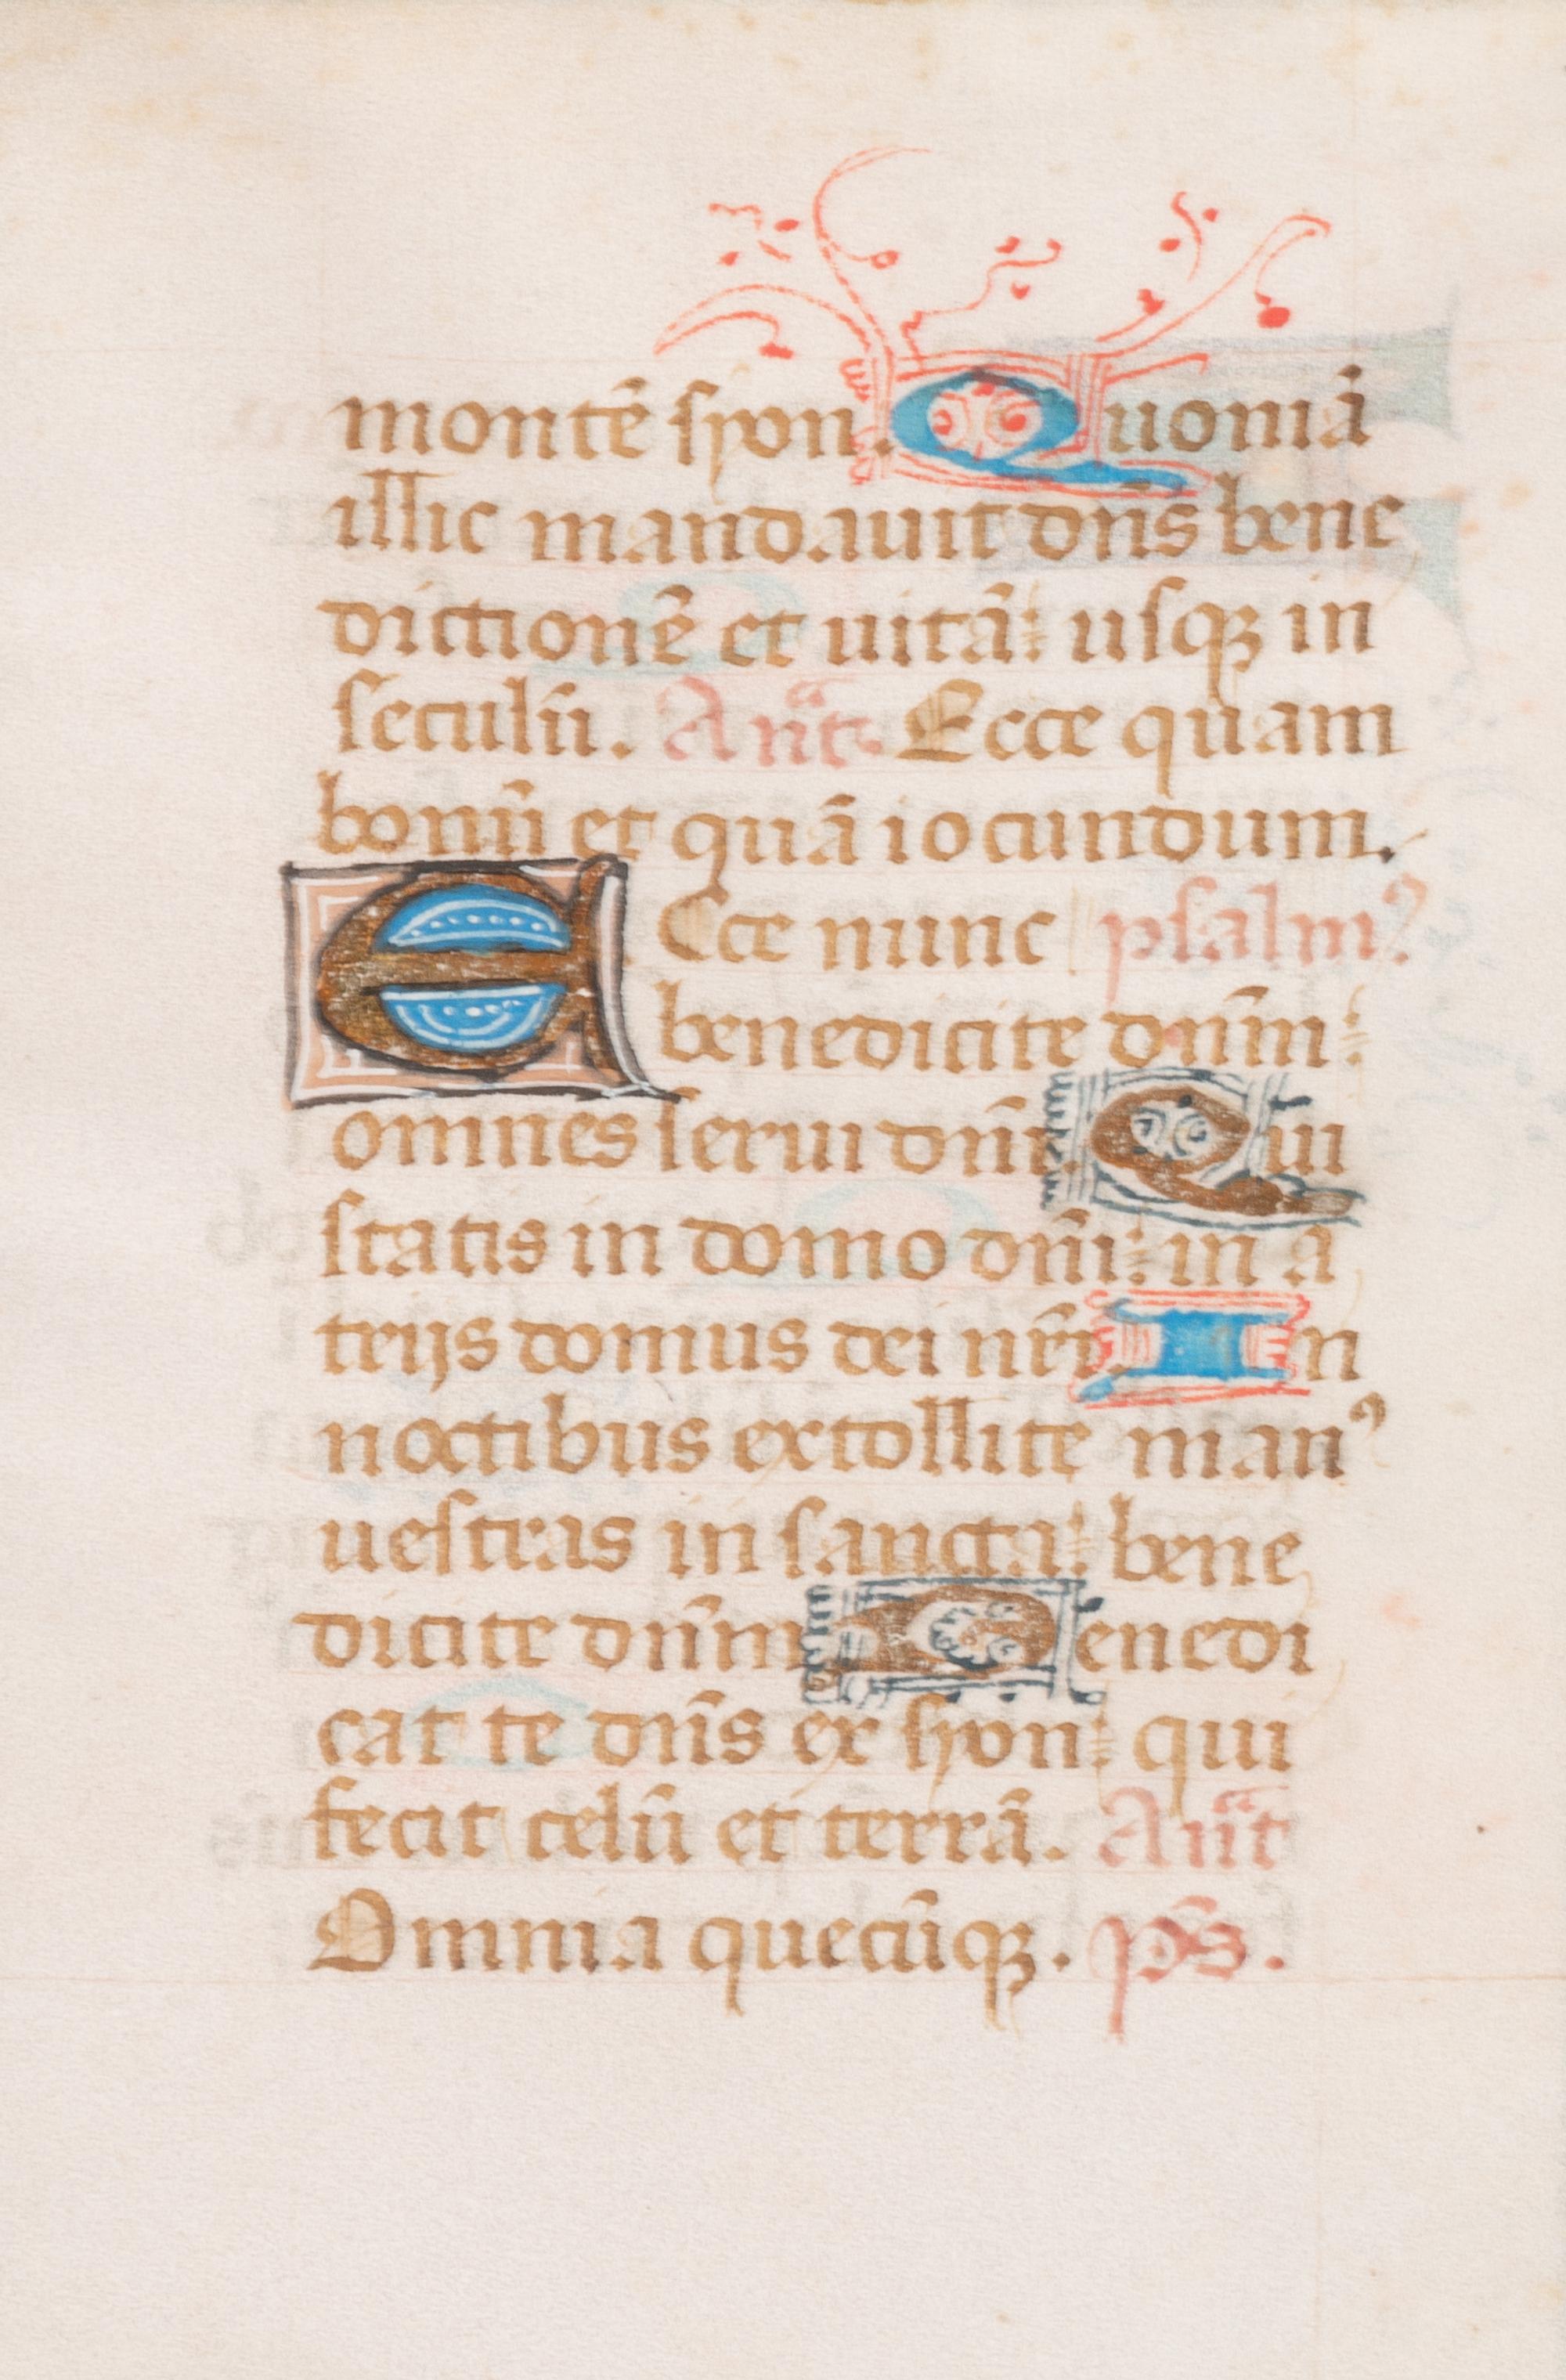 montē syon. Quoniā
illic mandauit dn̄s bene
dictionē et uitā: usqꝫ in
seculū. An̄t. Ecce quam
bonū et quā iocundum.
ECce nunc psalmꝰ
benedicite dn̄m:
omnes serui dn̄i. Qui
statis in domo dn̄i: in a
trijs domus dei nr̄i. In
noctibus extollite manꝰ
uestras in sancta: bene
dicite dn̄m. Benedi
cat te dn̄s ex syon: qui
fecit celū et terrā. An̄t
Omnia quecūqꝫ. ps̄.